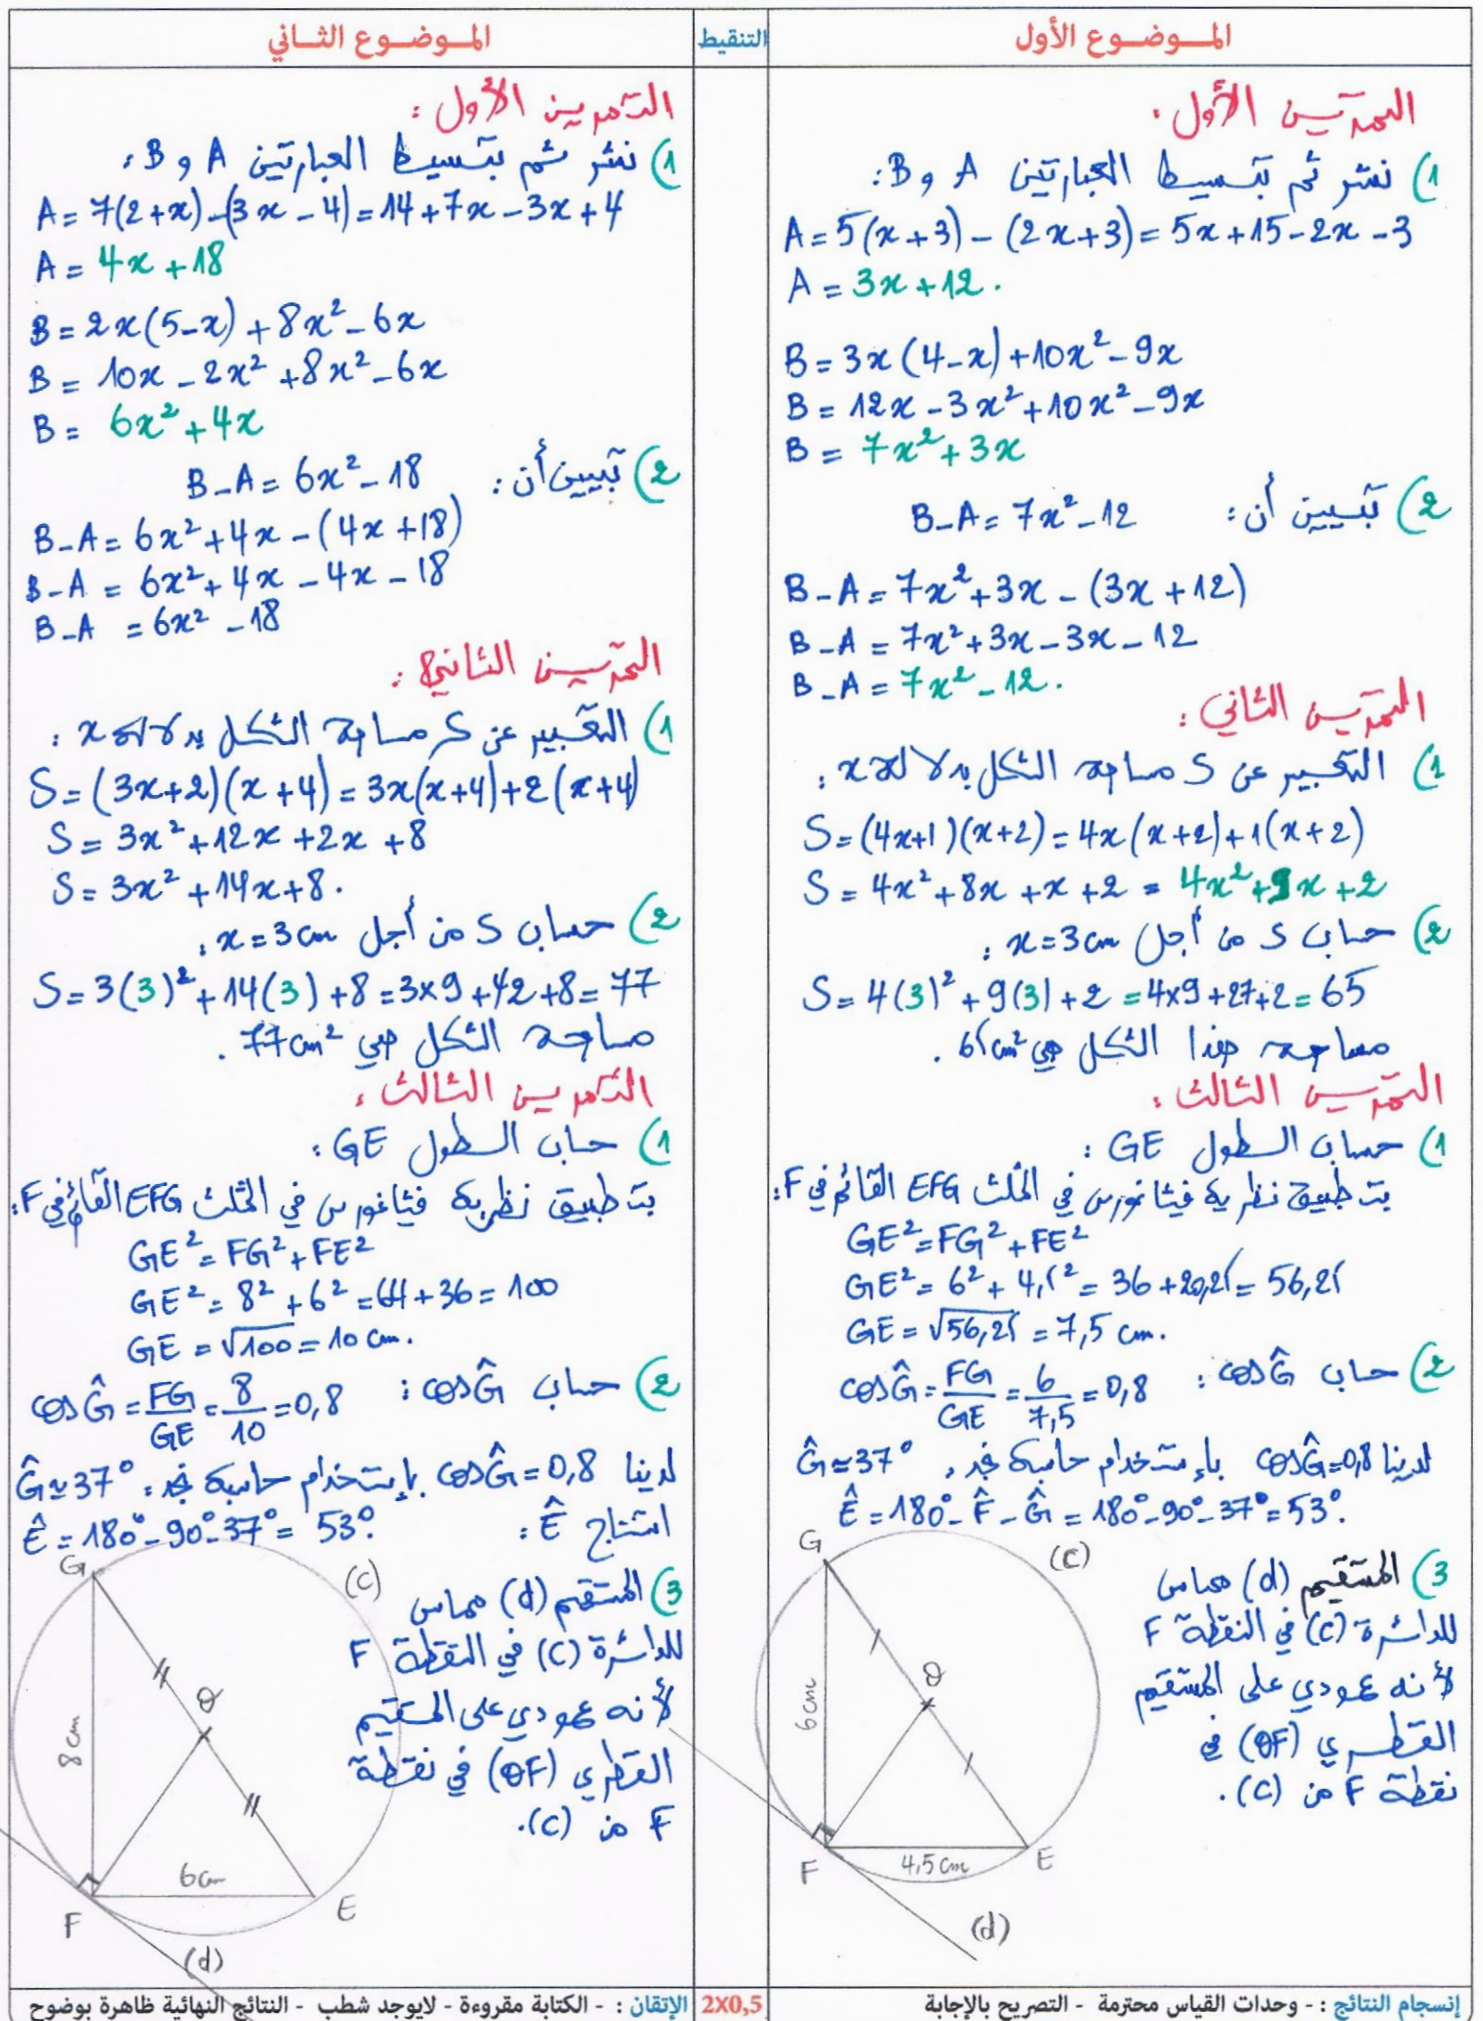 المـوضـوع الأول
التمرين الأول :
1) نشر ثم تبسيط العبارتين A و B :
A = 5(x+3) - (2x+3) = 5x+15-2x-3
A = 3x+12.
B = 3x(4-x)+10x²-9x
B = 12x-3x²+10x²-9x
B = 7x²+3x
2) تبيين أن : B-A = 7x²-12
B-A = 7x²+3x-(3x+12)
B-A = 7x²+3x-3x-12
B-A = 7x²-12.
التمرين الثاني :
1) التعبير عن S مساحة الشكل بدلالة x :
S = (4x+1)(x+2) = 4x(x+2)+1(x+2)
S = 4x²+8x+x+2 = 4x²+9x+2
2) حساب S من أجل x=3cm :
S = 4(3)²+9(3)+2 = 4×9+27+2 = 65
مساحة هذا الشكل هي 65cm² .
التمرين الثالث :
1) حساب الطول GE :
بتطبيق نظرية فيثاغورس في المثلث EFG القائم في F :
GE² = FG²+FE²
GE² = 6²+4,5² = 36+20,25 = 56,25
GE = √56,25 = 7,5 cm.
2) حساب cosĜ : cosĜ = FG/GE = 6/7,5 = 0,8
لدينا cosĜ=0,8 بإستخدام حاسبة نجد : Ĝ≃37°
Ê = 180°-F̂-Ĝ = 180°-90°-37° = 53°.
3) المستقيم (d) مماس
للدائرة (C) في النقطة F
لأنه عمودي على المستقيم
القطري (OF) في
نقطة F من (C).
G
(C)
O
6cm
F
4,5cm
E
(d)
إنسجام النتائج : - وحدات القياس محترمة - التصريح بالإجابة
التنقيط
2X0,5
المـوضـوع الثـاني
التمرين الأول :
1) نشر ثم تبسيط العبارتين A و B :
A = 7(2+x)-(3x-4) = 14+7x-3x+4
A = 4x+18
B = 2x(5-x)+8x²-6x
B = 10x-2x²+8x²-6x
B = 6x²+4x
2) تبيين أن : B-A = 6x²-18
B-A = 6x²+4x-(4x+18)
B-A = 6x²+4x-4x-18
B-A = 6x²-18
التمرين الثاني :
1) التعبير عن S مساحة الشكل بدلالة x :
S = (3x+2)(x+4) = 3x(x+4)+2(x+4)
S = 3x²+12x+2x+8
S = 3x²+14x+8.
2) حساب S من أجل x=3cm :
S = 3(3)²+14(3)+8 = 3×9+42+8 = 77
مساحة الشكل هي 77cm² .
التمرين الثالث :
1) حساب الطول GE :
بتطبيق نظرية فيثاغورس في المثلث EFG القائم في F :
GE² = FG²+FE²
GE² = 8²+6² = 64+36 = 100
GE = √100 = 10 cm.
2) حساب cosĜ : cosĜ = FG/GE = 8/10 = 0,8
لدينا cosĜ=0,8 بإستخدام حاسبة نجد : Ĝ≃37°
استنتاج Ê : Ê = 180°-90°-37° = 53°.
3) المستقيم (d) مماس
للدائرة (C) في النقطة F
لأنه عمودي على المستقيم
القطري (OF) في نقطة
F من (C).
G
(C)
O
8cm
6cm
F
E
(d)
الإتقان : - الكتابة مقروءة - لايوجد شطب - النتائج النهائية ظاهرة بوضوح